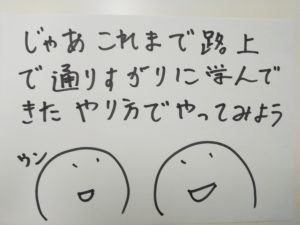 じゃあ これまで 路上
で 通りすがりに 学んで
きた やり方で やってみよう
ウン